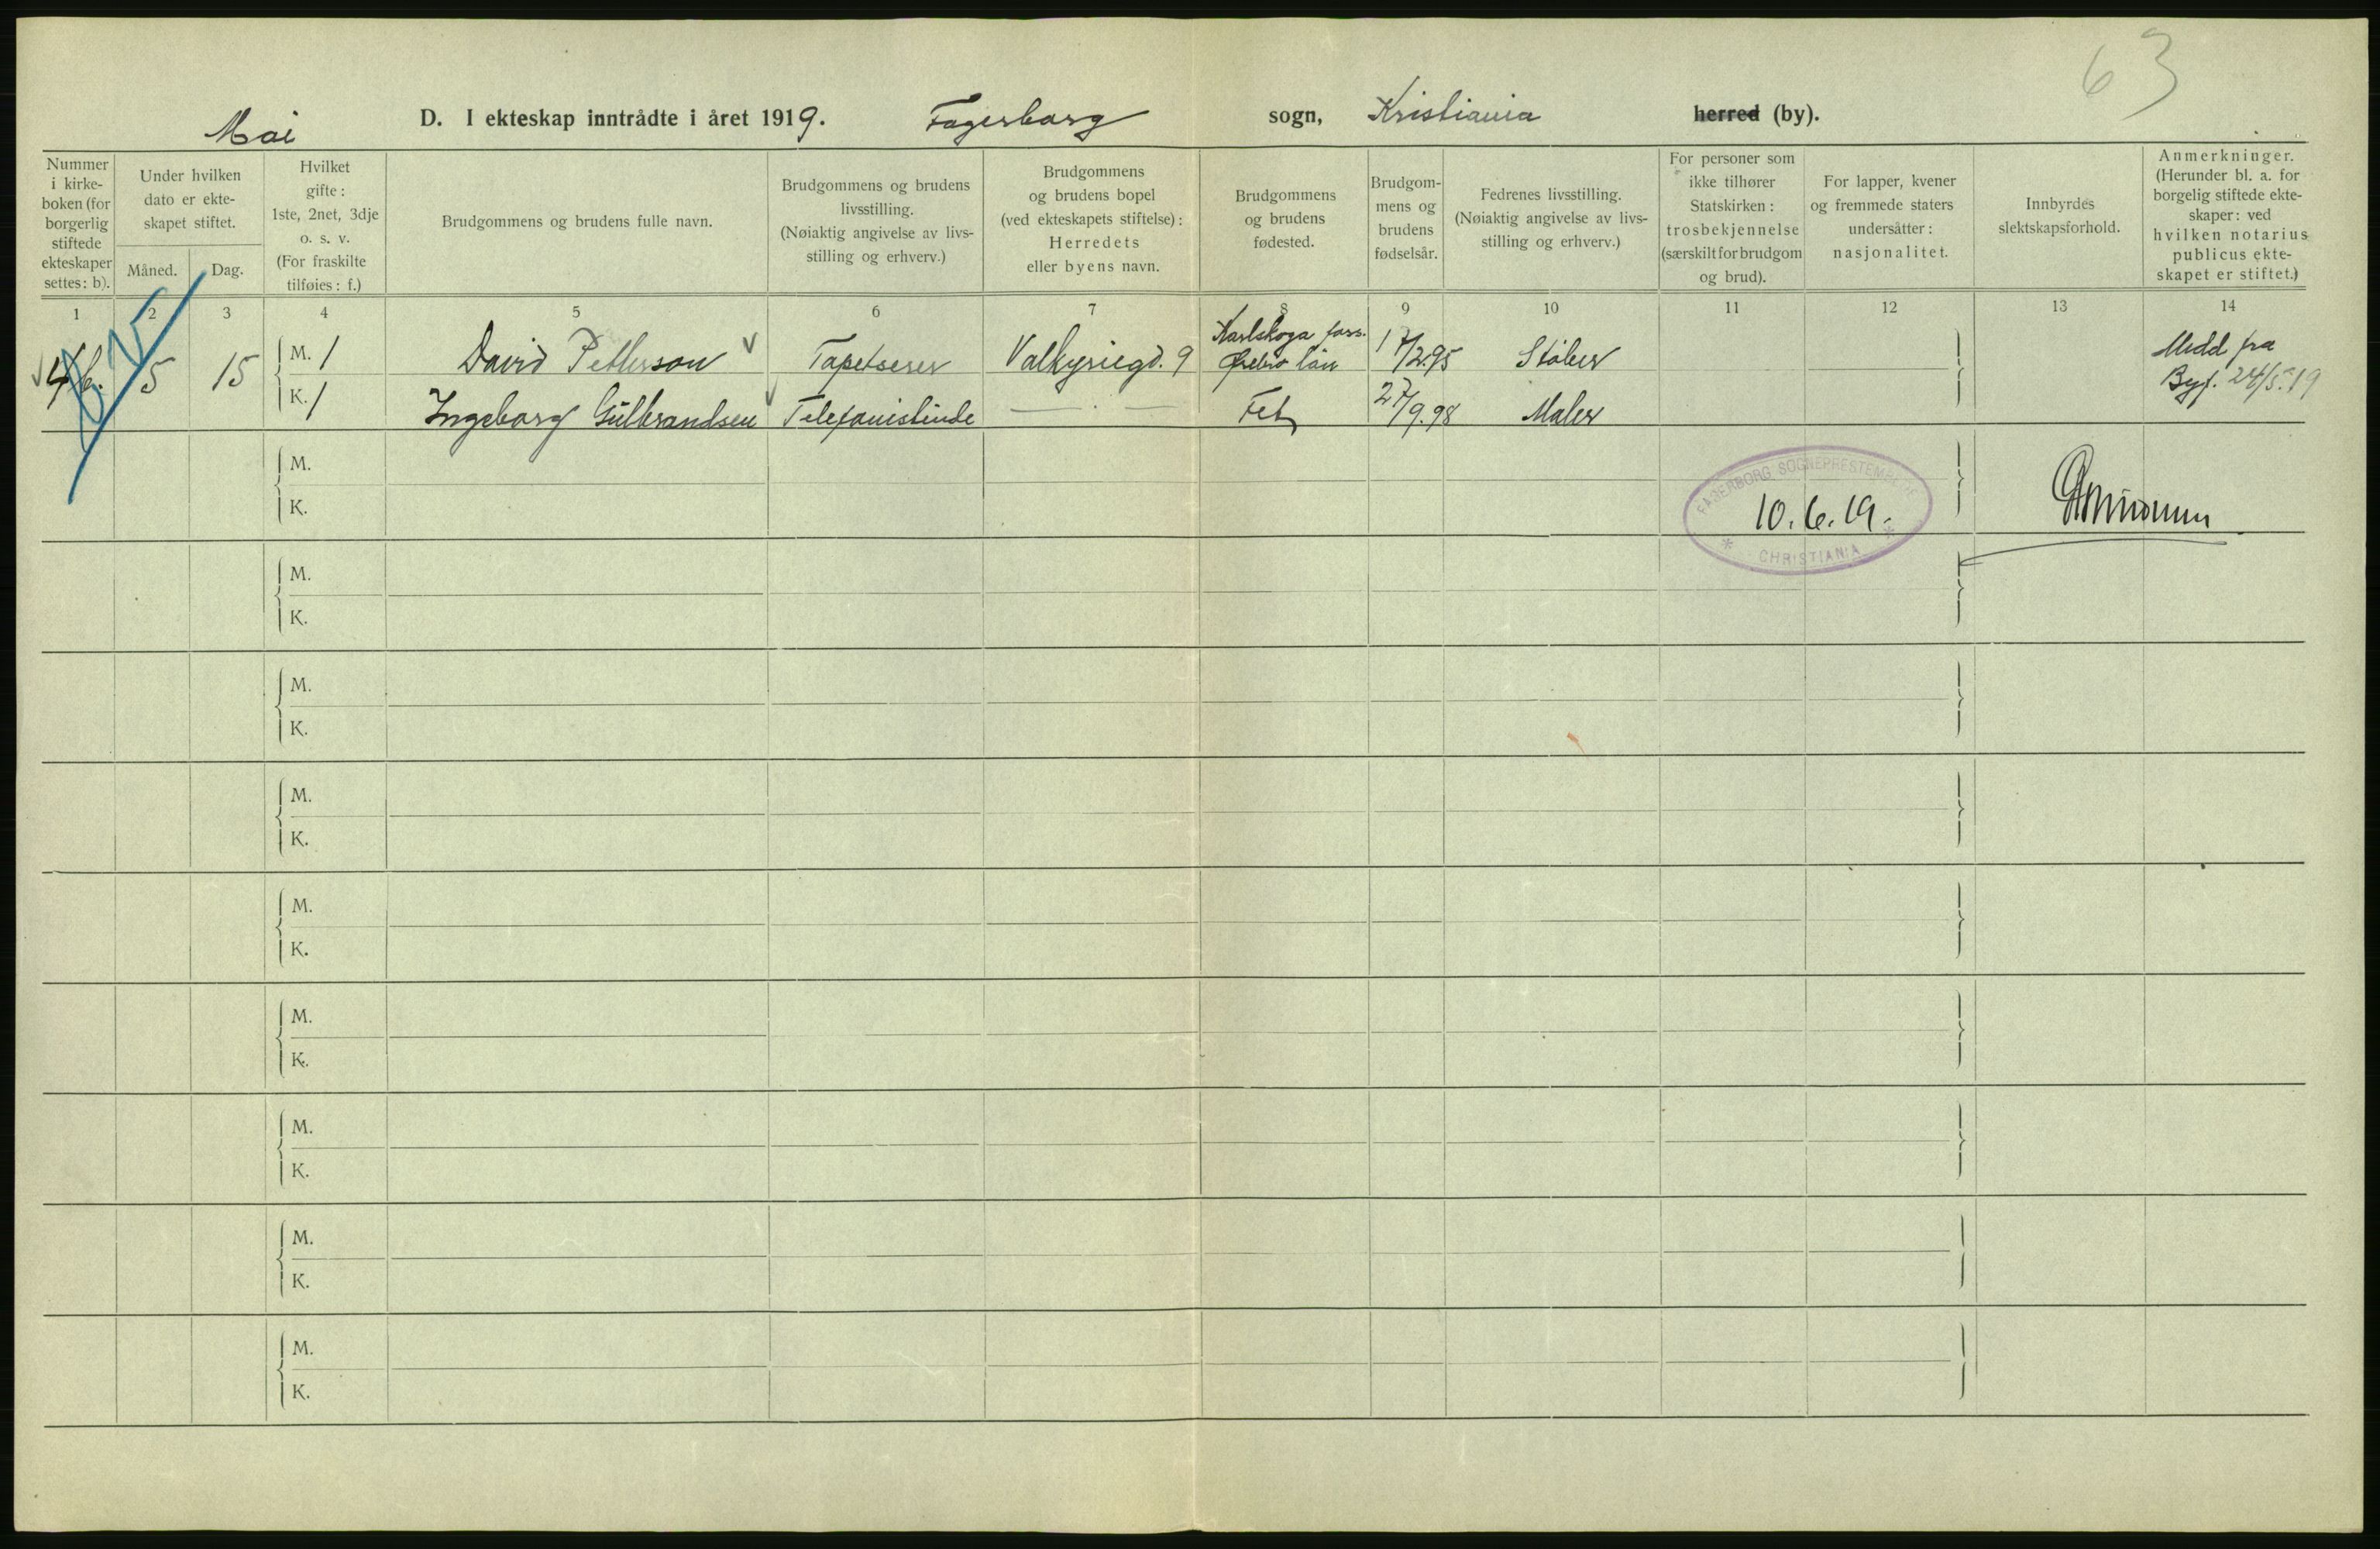 63
Mai D. I ekteskap inntrådte i året 1919. Fagerborg sogn, Kristiania herred (by).
Nummer
i kirke-
boken (for
borgerlig
stiftede
ekteskaper
settes: b).
Under hvilken
dato er ekte-
skapet stiftet.
Måned.
Dag.
Hvilket
gifte:
1ste, 2net, 3dje
o. s. v.
(For fraskilte
tilføies: f.)
Brudgommens og brudens fulle navn.
Brudgommens og brudens
livsstilling.
(Nøiaktig angivelse av livs-
stilling og erhverv.)
Brudgommens
og brudens bopel
(ved ekteskapets stiftelse):
Herredets
eller byens navn.
Brudgommens
og brudens
fødested.
Brudgom-
mens og
brudens
fødselsår.
Fedrenes livsstilling.
(Nøiaktig angivelse av livs-
stilling og erhverv.)
For personer som
ikke tilhører
Statskirken:
trosbekjennelse
(særskilt for brudgom
og brud).
For lapper, kvener
og fremmede staters
undersåtter:
nasjonalitet.
Innbyrdes
slektskapsforhold.
Anmerkninger.
(Herunder bl. a. for
borgelig stiftede ekte-
skaper: ved
hvilken notarius
publicus ekte-
skapet er stiftet.)
1 2 3 4 5 6 7 8 9 10 11 12 13 14
5 15
M. 1 David Petterson Tapetserer Valkyriegd. 9 Karlskoga fors. Ørebro län 17/2.95 Støber
K. 1 Ingeborg Gulbrandsen Telefonistinde — . — Fet 27/9.98 Maler
Medd fra
Byf. 24/5.19
M.
K.
FAGERBORG SOGNEPRESTEMBEDE
10.6.19.
* CHRISTIANIA *
M.
K.
M.
K.
M.
K.
M.
K.
M.
K.
M.
K.
M.
K.
M.
K.